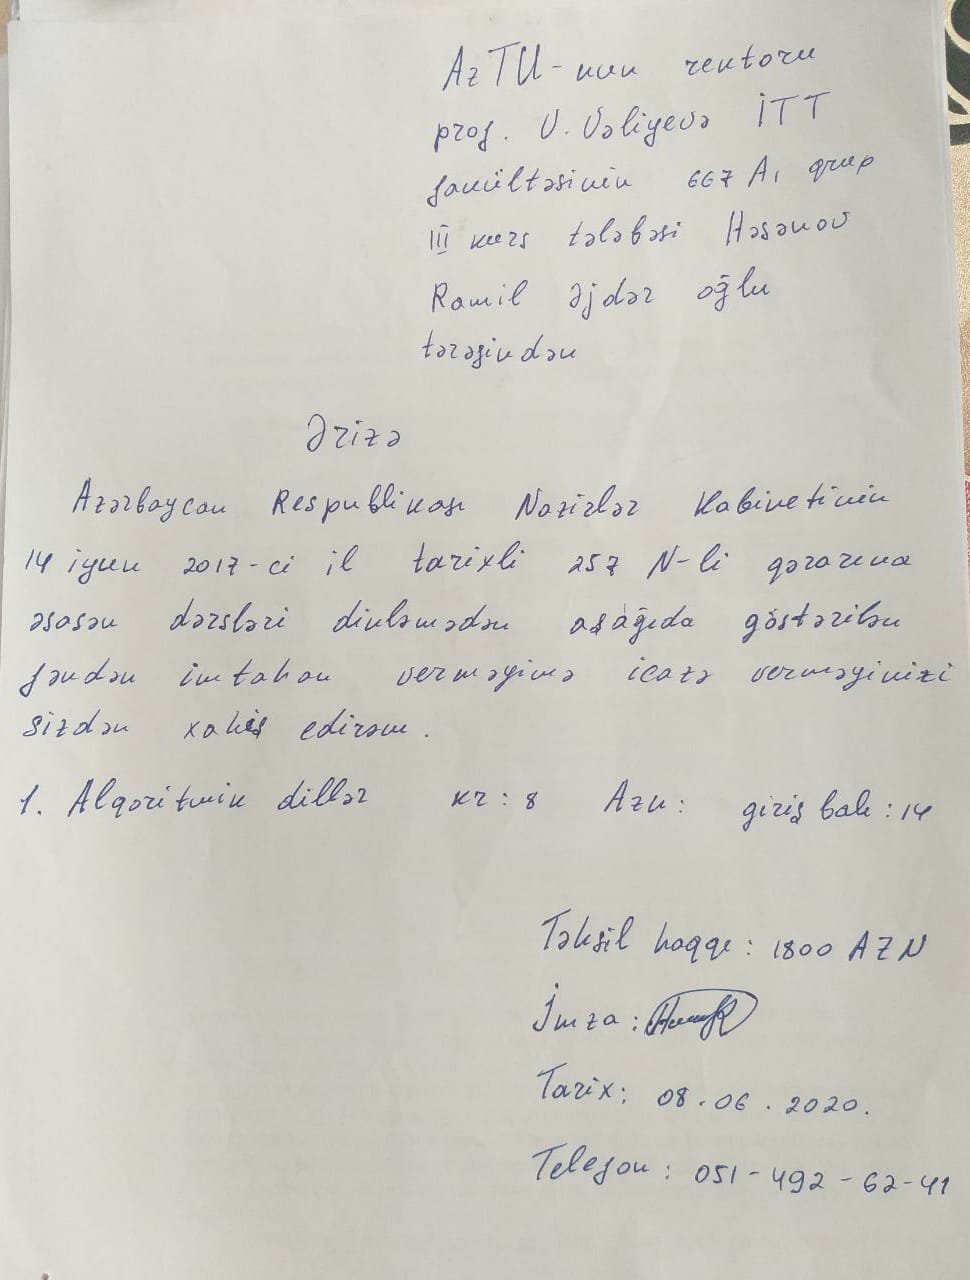 AzTU-nun rektoru
prof. V. Vəliyevə İTT
fakültəsinin 667 A1 qrup
III kurs tələbəsi Həsənov
Ramil Əjdər oğlu
tərəfindən
Ərizə
Azərbaycan Respublikası Nazirlər Kabinetinin
14 iyun 2017-ci il tarixli 257 N-li qərarına
əsasən dərsləri dinləmədən aşağıda göstərilən
fəndən imtahan verməyimə icazə verməyinizi
sizdən xahiş edirəm.
1. Alqoritmik dillər kr: 8 Azn: giriş balı: 14
Təhsil haqqı: 1800 AZN
İmza:
Tarix: 08.06.2020.
Telefon: 051-492-62-41